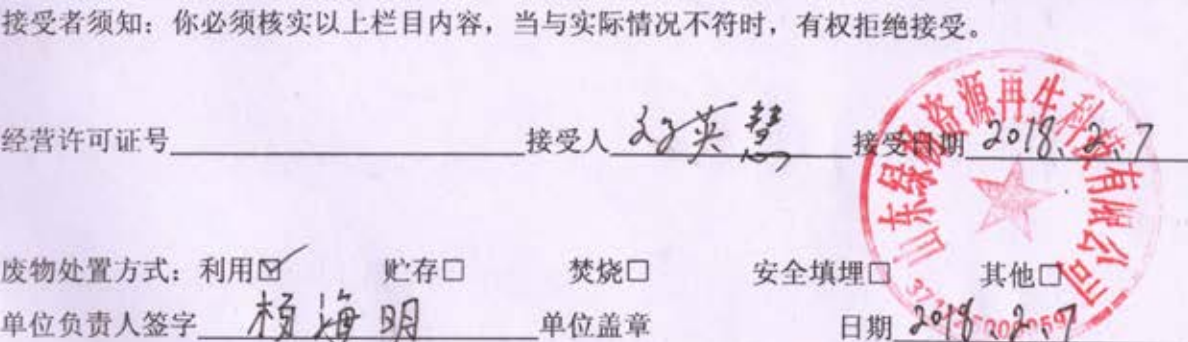 接受者须知：你必须核实以上栏目内容，当与实际情况不符时，有权拒绝接受。
经营许可证号 接受人 刘英慧 接受日期 2018.2.7
山东绿 资源再生科技有限公司
废物处置方式：利用☑ 贮存□ 焚烧□ 安全填埋□ 其他□
单位负责人签字 杨海明 单位盖章 日期 2018.2.7